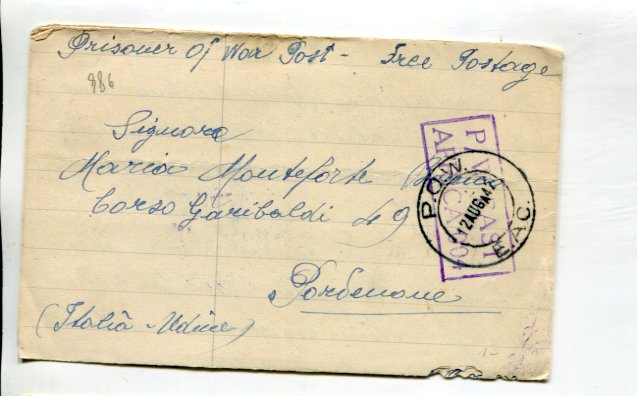 Prisoner of War Post - Free Postage
986
Signora
Maria Monteforte
Corso Garibaldi 49
Pordenone
(Italia - Udine)
P.O.W.
12AUG42
E.A.C.
EAST